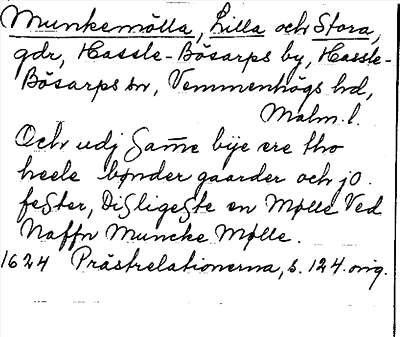 Munkemölla, Lilla och Stora,
gdr, Hassle-Bösarps by, Hassle-
Bösarps sn, Vemmenhögs hd,
Malm. l.
Och udj Same bije ere tho
heele bønder gaarder och jo
fester, Disligeste en Mølle Ved
Naffn Muncke Mølle.
1624 Prästrelationerna, s. 124. orig.